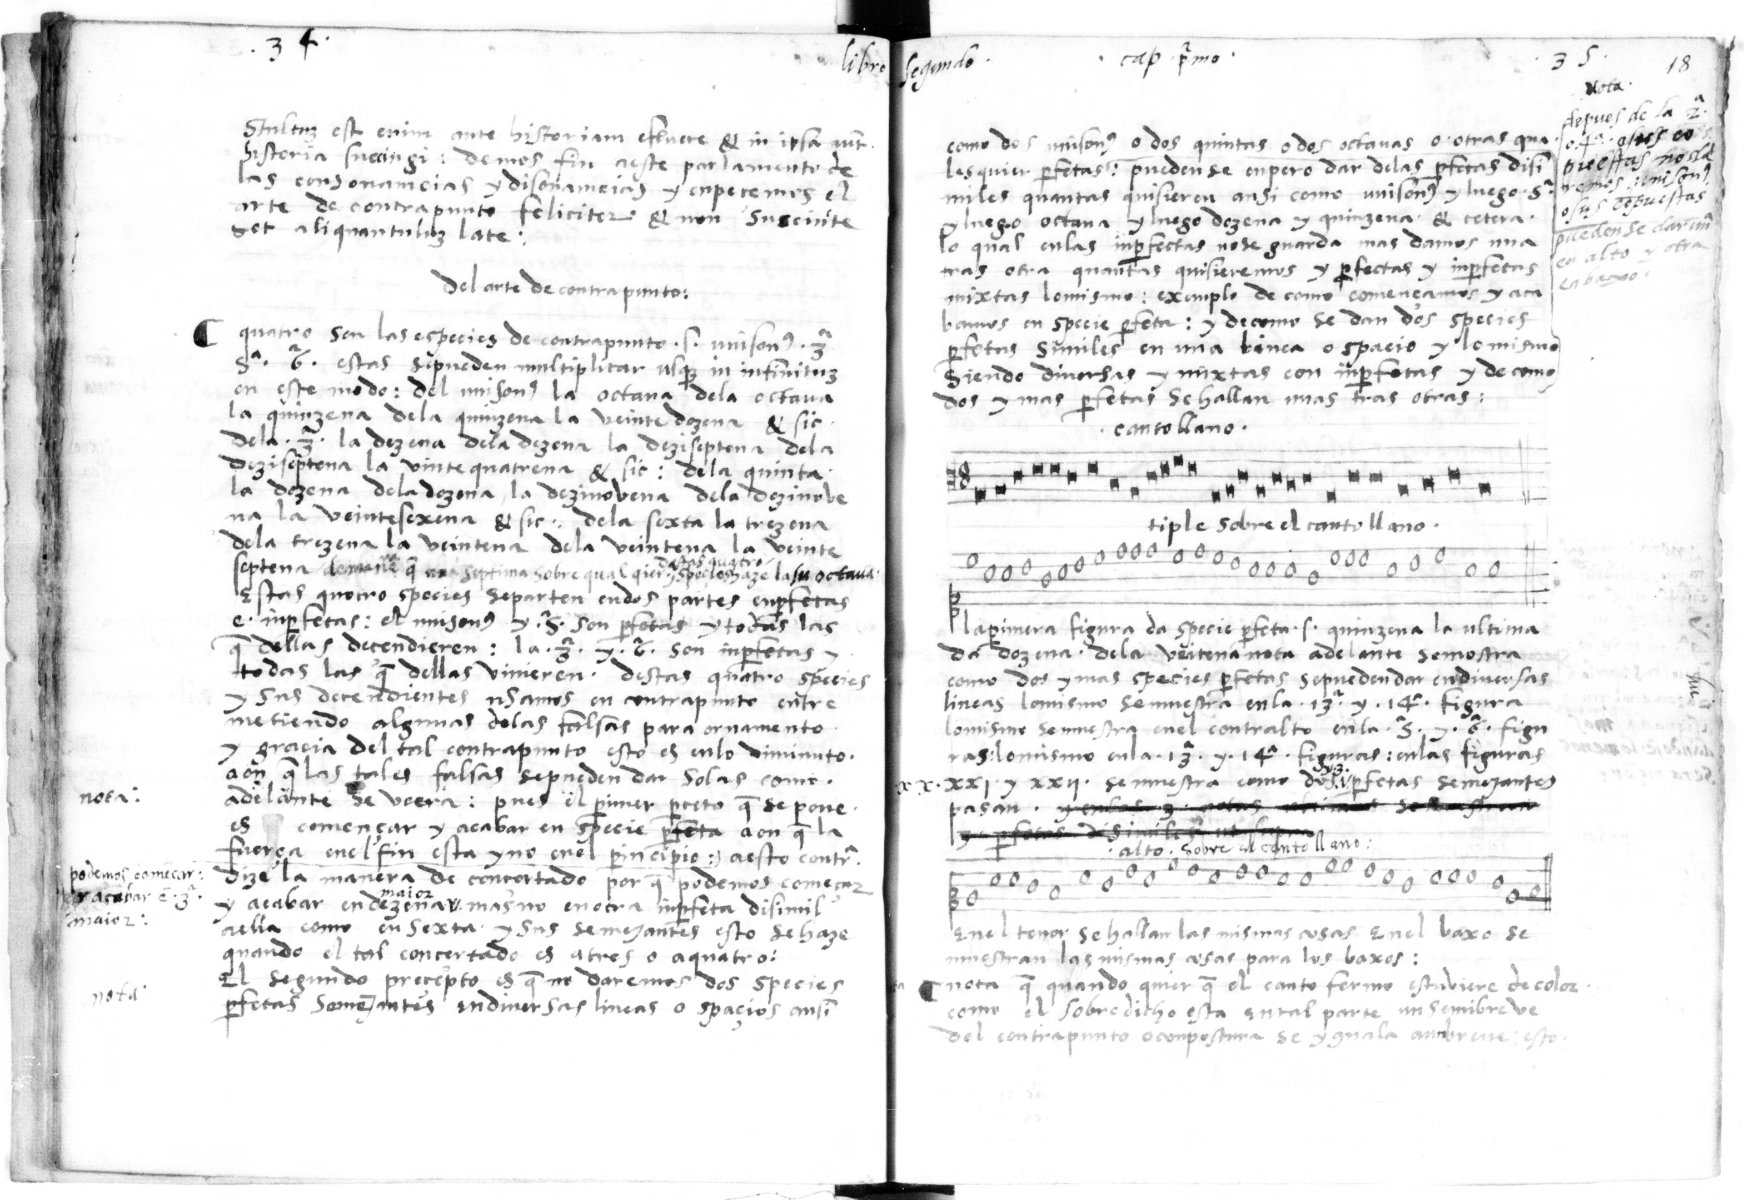 . 3 4 .
libro
Stultuz est enim ante historiam efluere & in ipsa aut.
historia sucingi : demos fin aeste parlamento de
las consonancias y disonancias y enpecemos el
arte de contrapunto feliciter & non suscinte
set aliquantuluz late :
Del arte de contrapunto :
quatro son las especies de contrapunto . s . unisonꝰ . 3ª
5ª . 6ª . estas sepueden multiplicar usqz in infinituz
en este modo : del unisonꝰ la octava dela octava
la quinzena dela quinzena la veinte dozena & sic .
dela . 3ª . la dezena dela dezena la deziseptena dela
deziseptena la vinte quatrena & sic : dela quinta
la dozena dela dozena la dezinovena dela dezinove
na la veintesexena & sic : dela sexta la trezena
dela trezena la veintena dela veintena la veinte
septena septima sobre qual qier haze la su octava .
destas quatro
Estas quatro species separten endos partes en ꝑfetas
e . inꝑfetas : el unisonꝰ y . 5ª . son ꝑfetas y todas las
q̃ dellas decendieren : la . 3ª . y . 6ª . son inꝑfetas y
todas las q̃ dellas vinieren . destas quatro species
y sus decendientes usamos en contrapunto entre
metiendo algunas delas falsas para ornamento
y gracia del tal contrapunto esto es enlo diminuto .
aon q̃ las tales falsas sepueden dar solas como .
adelante se veera : pues el pimer pceto q̃ se pone .
es començar y acabar en specie ꝑfeta aon q̃ la
fuerça enel fin esta y no enel pincipio : aesto contrª .
dize la manera de concertado por q̃ podemos começar
y acabar en dezena maior mas no en otra inꝑfeta disimil
aella como en sexta . y sus semejantes esto se haze
quando el tal concertado es atres o aquatro :
El segundo precepto es q̃ no daremos dos species
ꝑfetas semejantes en diversas lineas o spacios ansi
nota :
podemos comecar :
y acabar ẽ . 3ª .
maior :
nota
segundo . . cap . pmo . . 3 5 . 18
nota .
depues de la 2ª .
o . 4ª .
o sus cõpuestas
pueden se dar un
en alto y otra
en baxo .
como dos unisonꝰ o dos quintas o dos octavas o . otras qua
les quier ꝑfetas : pueden se enpero dar delas ꝑfetas disi
miles quantas quisieren ansi como unisonꝰ y luego . 5ª
y luego octava y luego dozena y quinzena & cetera .
lo qual enlas inꝑfectas no se guarda mas damos una
tras otra quantas quisieremos y ꝑfectas y inꝑfetas
mixtas lo mismo : exemplo de como començamos y aca
bamos en specie ꝑfeta : y de como se dan dos species
ꝑfetas similes en una linea o spacio y lo mismo
siendo diversas y mixtas con inꝑfetas y de como
dos y mas ꝑfetas se hallan unas tras otras :
. canto llano .
tiple sobre el canto llano .
la pimera figura da specie ꝑfeta . s . quinzena la ultima
da dozena . dela veitena nota adelante se mostra
como dos y mas species ꝑfetas sepueden dar en diversas
lineas lo mismo se muestra enla . 13ª . y . 14ª . figura
lo mismo se muestra enel contralto enla . 5ª . y . 6ª . figu
ras : lo mismo enla . 13ª . y . 14ª . figuras : enlas figuras
xx . xxi . y xxii . se muestra como dos ꝑfetas semejantes
pasan .
. alto . sobre el canto llano :
Enel tenor se hallan las mismas cosas Enel baxo se
muestran las mismas cosas para los baxos :
nota q̃ quando quier q̃ el canto fermo estuviere de color
como el sobredicho esta en tal parte un semibreve
del contrapunto o compostura se yguala aun breve : esto .